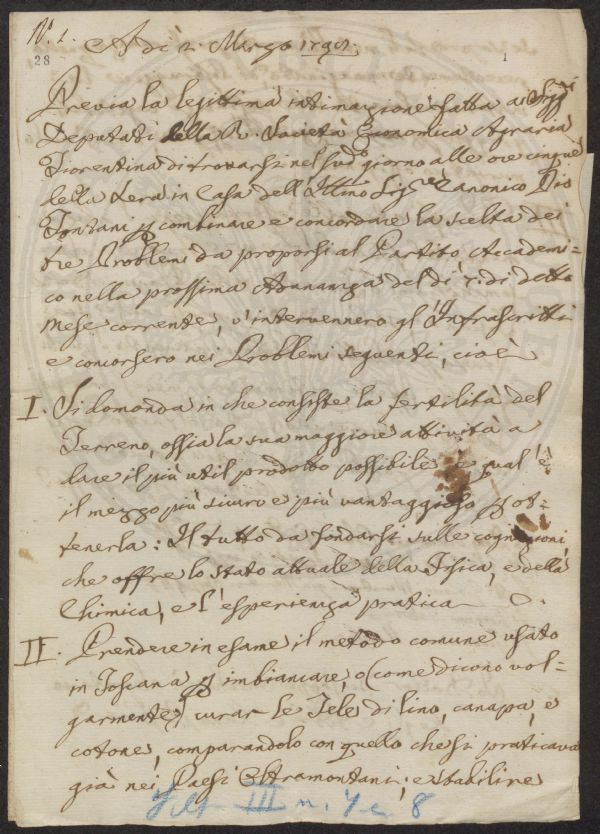 N.º 1.
28
1
A dì 2. Marzo 1792.
Previa la legittima intimazione fatta ai Sigg.ri
Deputati della R. Società Economica Agraria
Fiorentina di trovarsi nel sud.º giorno alle ore cinque
della sera in Casa dell'Ill.mo Sig.re Canonico
Fontani p combinare e concordare la scelta dei
tre Problemi da proporsi al Partito Accademi=
co nella prossima Adunanza del dì 7. di detto
Mese corrente, v'intervennero gl'Infrascritti
e concorsero nei Problemi seguenti, cioè
I. Si domanda in che consiste la fertilità del
Terreno, ossia la sua maggiore attività a
dare il più util prodotto possibile e qual'è
il mezzo più sicuro e più vantaggioso p ot=
tenerla: Il tutto da fondarsi sulle cognizioni
che offre lo stato attuale della Fisica, e della
Chimica, e l'esperienza pratica
II. Prendere in esame il metodo comune usato
in Toscana p imbiancare, o (come dicono vol=
garmente) curar le Tele di lino, canapa, e
cotone, comparandolo con quello che si pratica
già nei Paesi Oltramontani; e stabilire
III n. 4 e 8